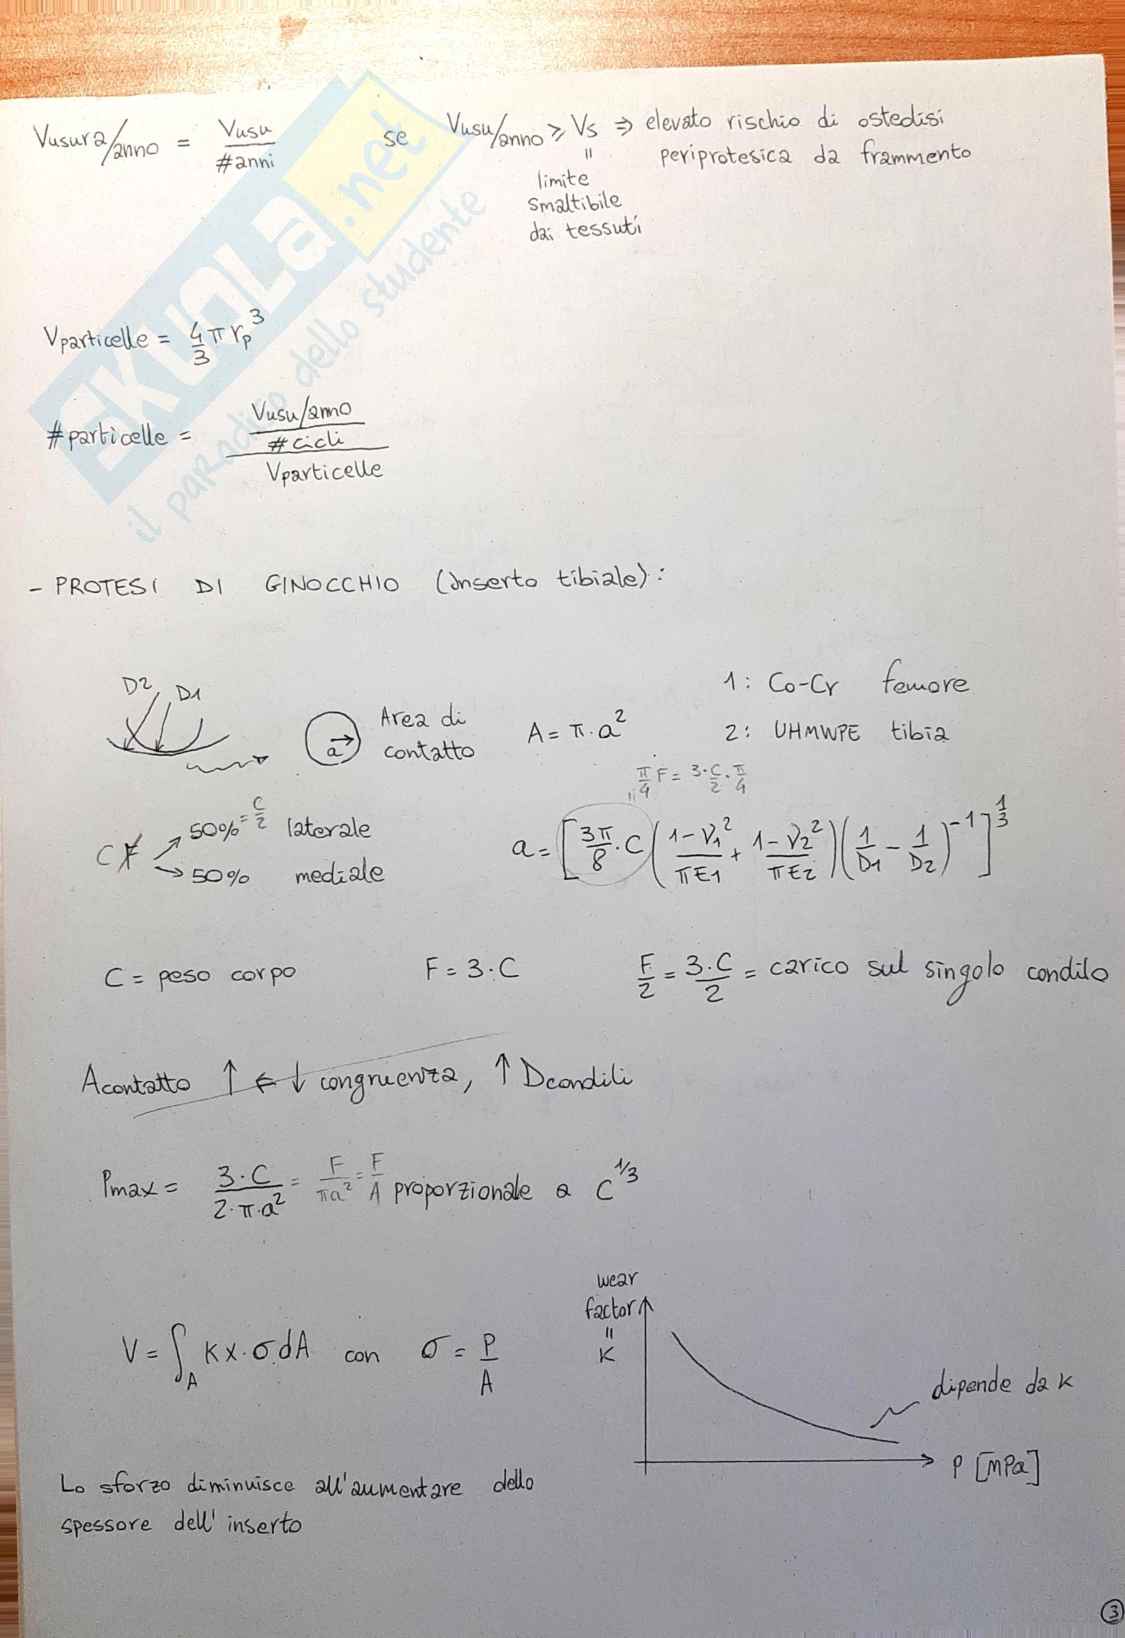 Vusura/anno = Vusu / #anni   se   Vusu/anno ⩾ Vs ⇒ elevato rischio di osteolisi
periprotesica da frammento
"
limite
smaltibile
dai tessuti
SKUOLA.net
il paradiso dello studente
Vparticelle = 4/3 π rp^3
#particelle = (Vusu/anno / #cicli) / Vparticelle
- PROTESI DI GINOCCHIO (Inserto tibiale):
D2 D1
a
Area di
contatto
A = π·a^2
1: Co-Cr femore
2: UHMWPE tibia
π/4 F = 3·C/2·π/4
"
C
50% = C/2 laterale
50% mediale
a = [3π/8·C ((1-ν1^2)/(πE1) + (1-ν2^2)/(πE2)) (1/D1 - 1/D2)^-1]^1/3
C = peso corpo   F = 3·C   F/2 = 3·C/2 = carico sul singolo condilo
Acontatto ↑ ⇐ ↓ congruenza, ↑ Dcondili
Pmax = 3·C / 2·π·a^2 = F/πa^2 = F/A proporzionale a C^1/3
V = ∫A Kx·σ dA con σ = P/A
wear
factor
"
K
dipende da K
P [MPa]
Lo sforzo diminuisce all'aumentare dello
spessore dell'inserto
3